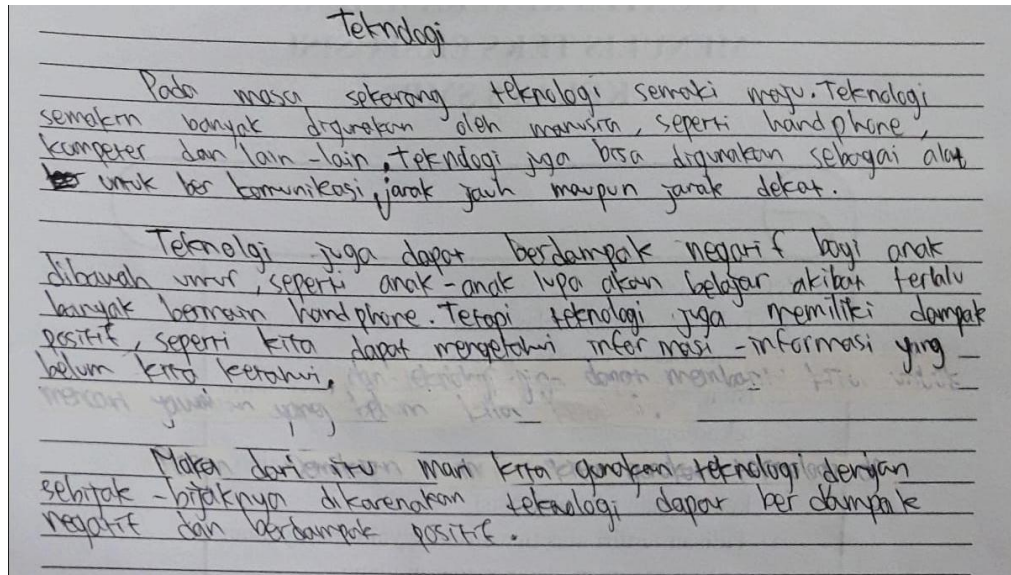 Teknologi
Pada masa sekarang teknologi semaki maju. Teknologi
semakin banyak digunakan oleh manusia, seperti handphone,
komputer dan lain-lain, teknologi juga bisa digunakan sebagai alat
untuk ber komunikasi, jarak jauh maupun jarak dekat.
Teknolgi juga dapat berdampak negatif bagi anak
dibawah umur, seperti anak-anak lupa akan belajar akibat terlalu
banyak bermain handphone. Tetapi teknologi juga memiliki dampak
positif, seperti kita dapat mengetahui infor masi-informasi yang
belum kita ketahui.
mencari jawaban yang belum kita
Maka dari itu mari kita gunakan teknologi dengan
sebijak-bijaknya dikarenakan teknologi dapat ber dampak
negatif dan berdampak positif.